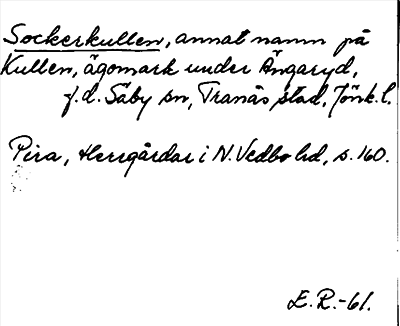 Sockerkullen, annat namn på
Kullen, ägomark under Ängaryd,
f.d. Säby sn, Tranås stad, Jönk.l.
Pira, Herrgårdar i N. Vedbo hd, s. 160.
E.R.-61.